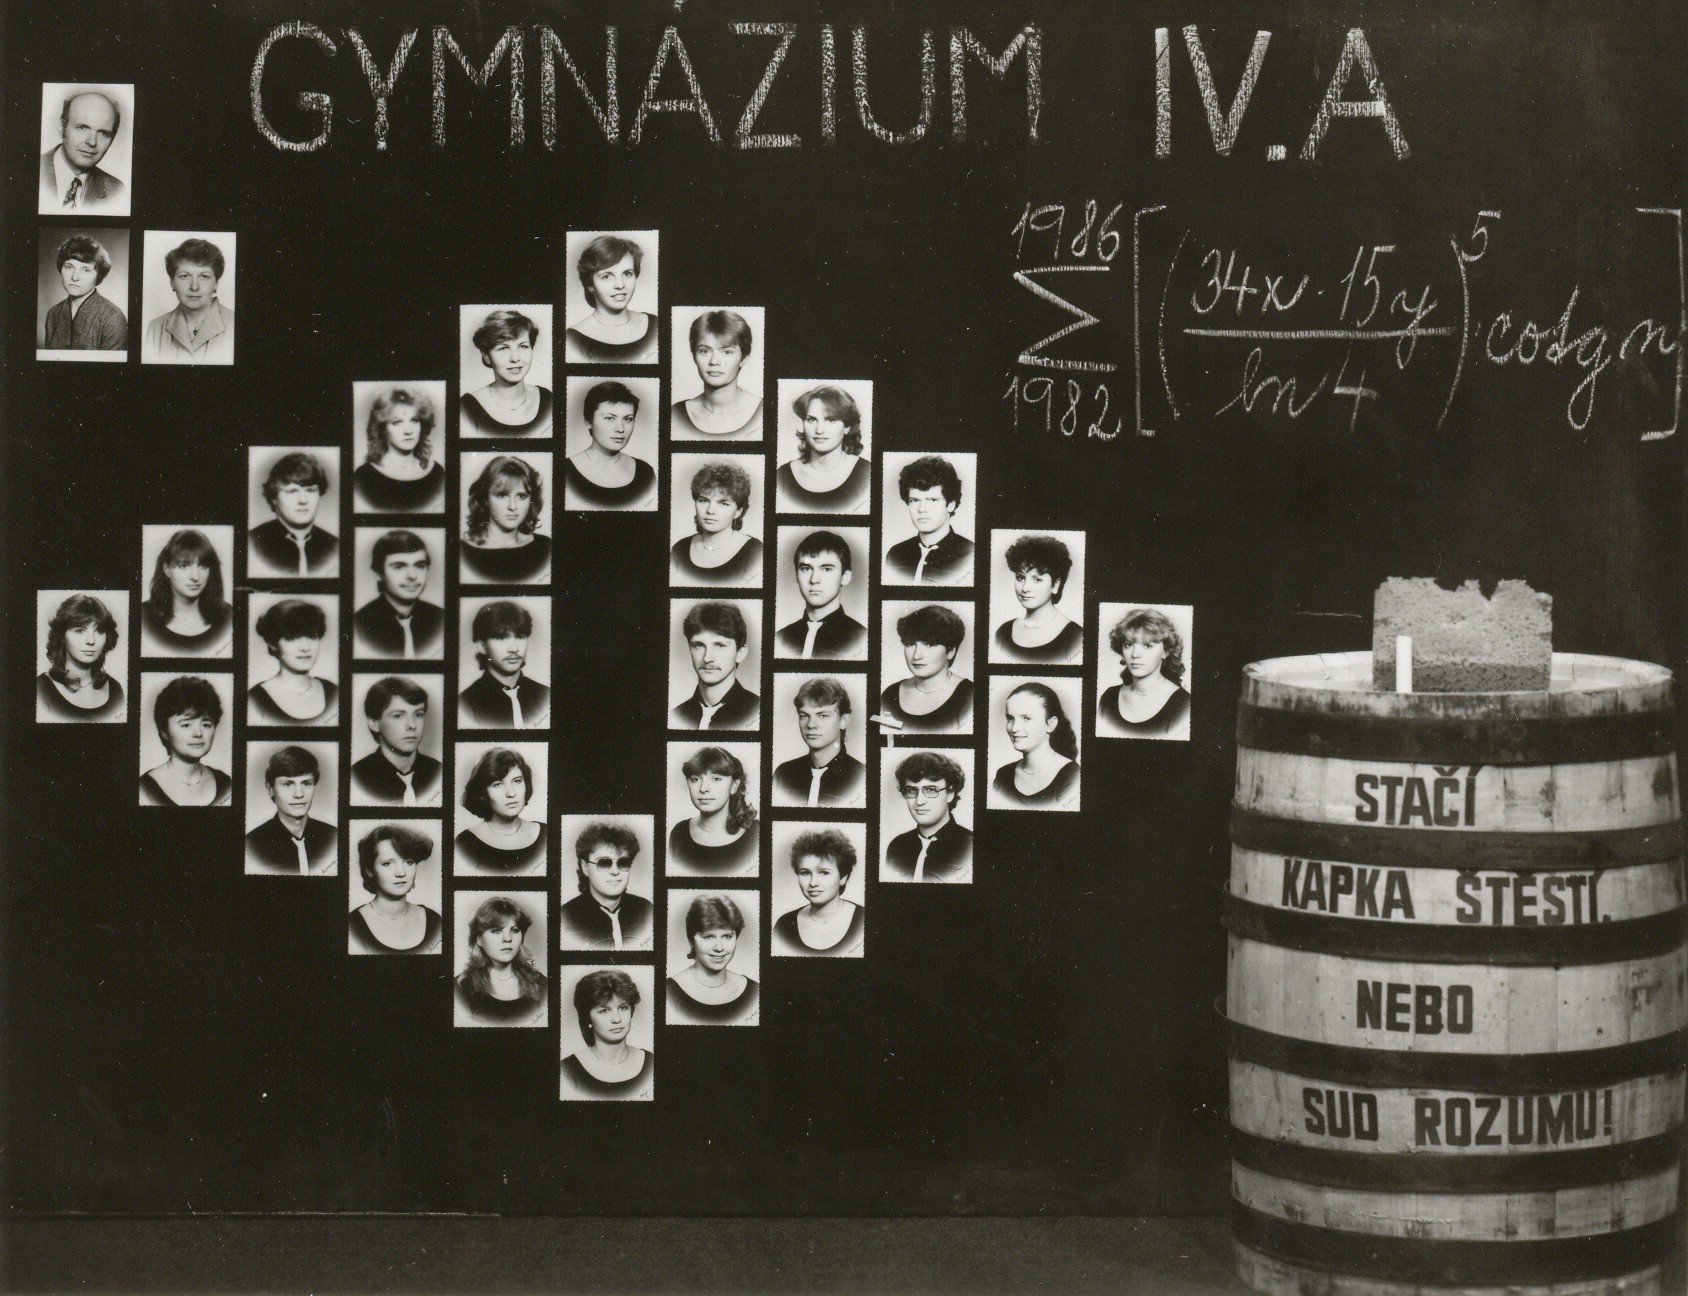 GYMNÁZIUM IV.A
1986
Σ [(34x·15y / ln 4)⁵ · cotg n]
1982
STAČÍ
KAPKA ŠTĚSTÍ,
NEBO
SUD ROZUMU!